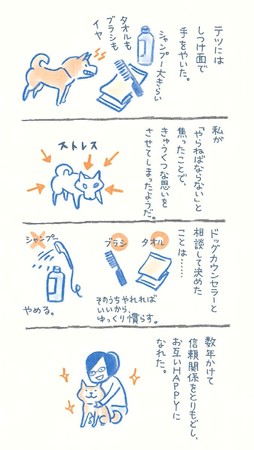 テツには
しつけ面で
手をやいた。
シャンプー大きらい
タオルも
ブラシも
イヤ
私が
「やらねばならない」と
焦ったことで、
きゅうくつな思いを
させてしまったようだ。
ストレス
ドッグカウンセラーと
相談して決めた
ことは……
タオル
ブラシ
そのうちやれれば
いいから、
ゆっくり慣らす。
シャンプー
やめる。
数年かけて
信頼関係をとりもどし、
お互いHAPPYに
なれた。